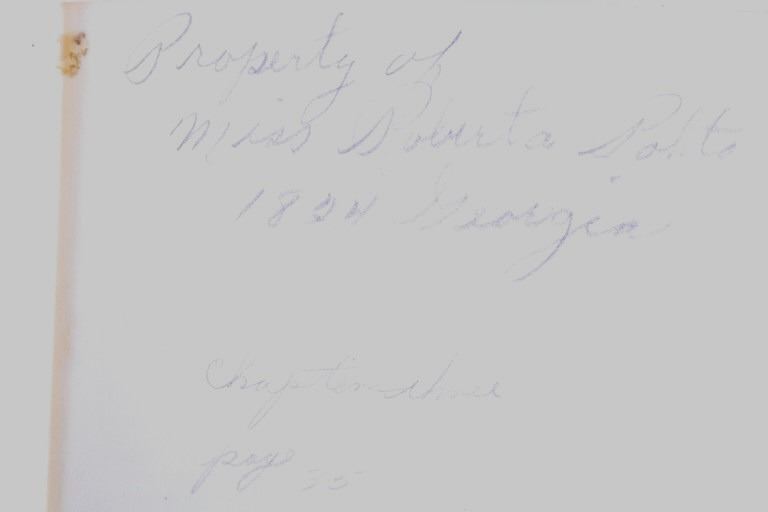 Property of
Miss Roberta
1824 Georgia
Chapter three
page 35